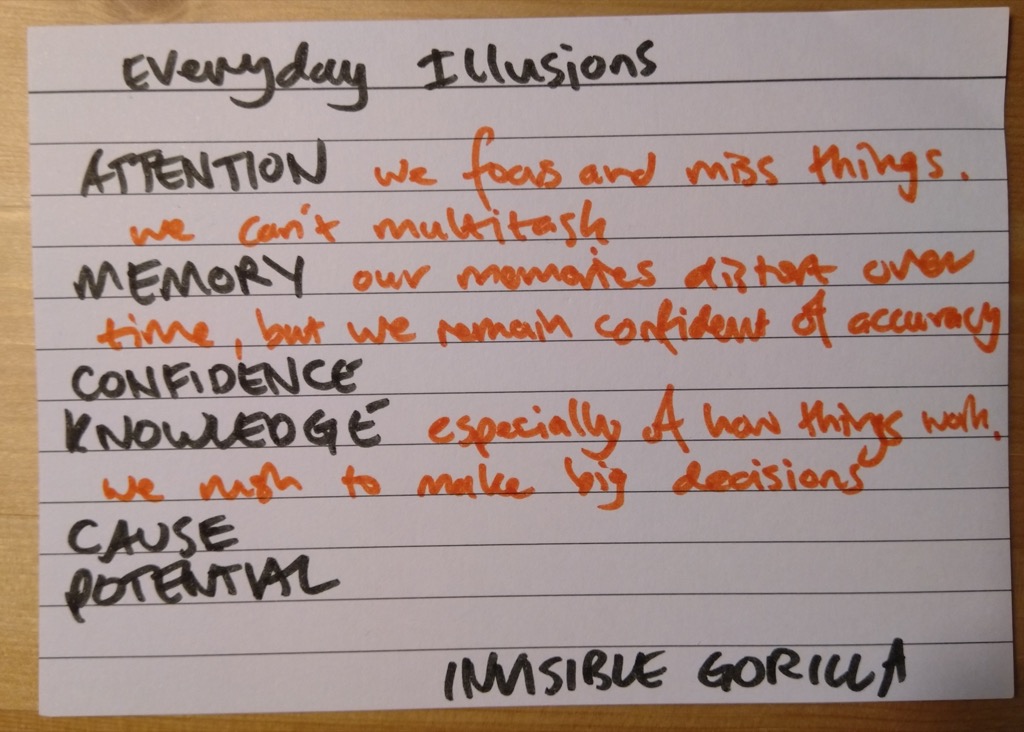 Everyday Illusions
ATTENTION we focus and miss things.
we can't multitask
MEMORY our memories distort over
time, but we remain confident of accuracy
CONFIDENCE
KNOWLEDGE especially of how things work.
we rush to make big decisions
CAUSE
POTENTIAL
INVISIBLE GORILLA